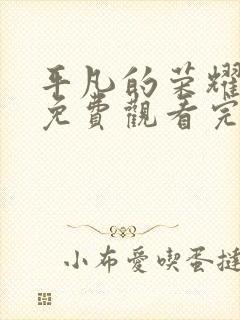 平凡的荣耀
免費觀看完
小布愛喫蛋撻